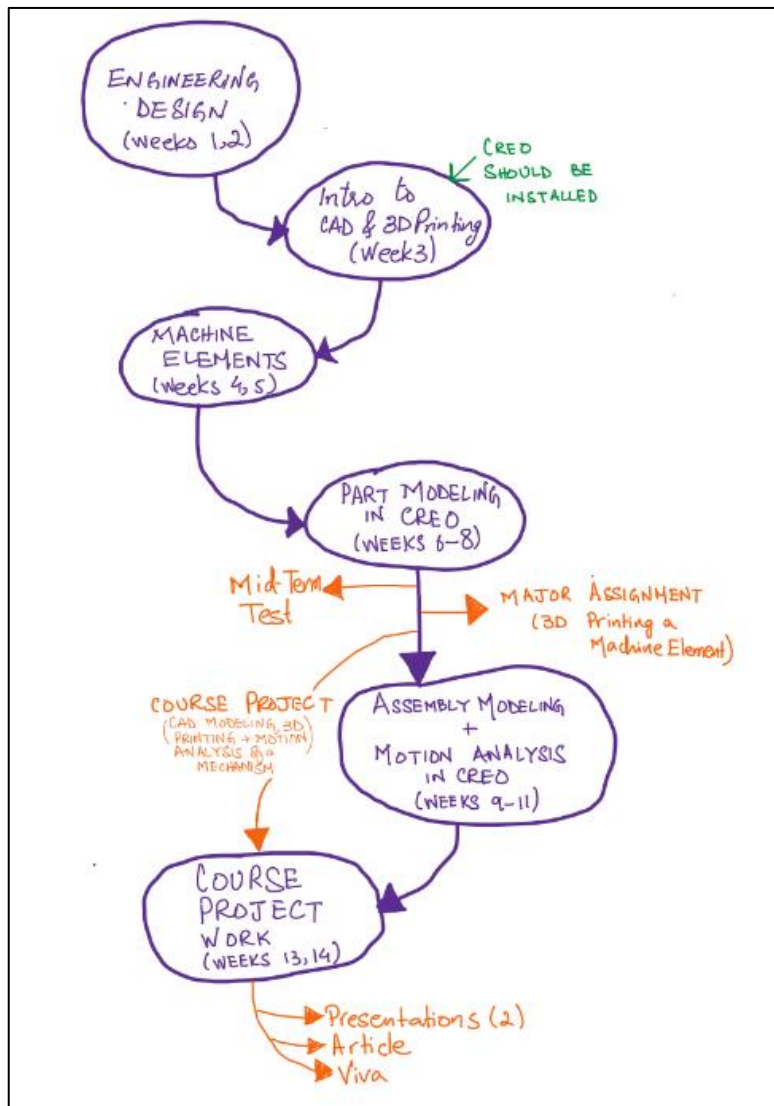 ENGINEERING
DESIGN
(weeks 1,2)
CREO
SHOULD BE
INSTALLED
Intro to
CAD & 3D Printing
(Week3)
MACHINE
ELEMENTS
(weeks 4,5)
PART MODELING
IN CREO
(WEEKS 6-8)
Mid-Term
Test
MAJOR ASSIGNMENT
(3D Printing a
Machine Element)
COURSE PROJECT
(CAD MODELING, 3D
PRINTING + MOTION
ANALYSIS of a
MECHANISM
ASSEMBLY MODELING
+
MOTION ANALYSIS
IN CREO
(WEEKS 9-11)
COURSE
PROJECT
WORK
(WEEKS 13,14)
Presentations (2)
Article
Viva